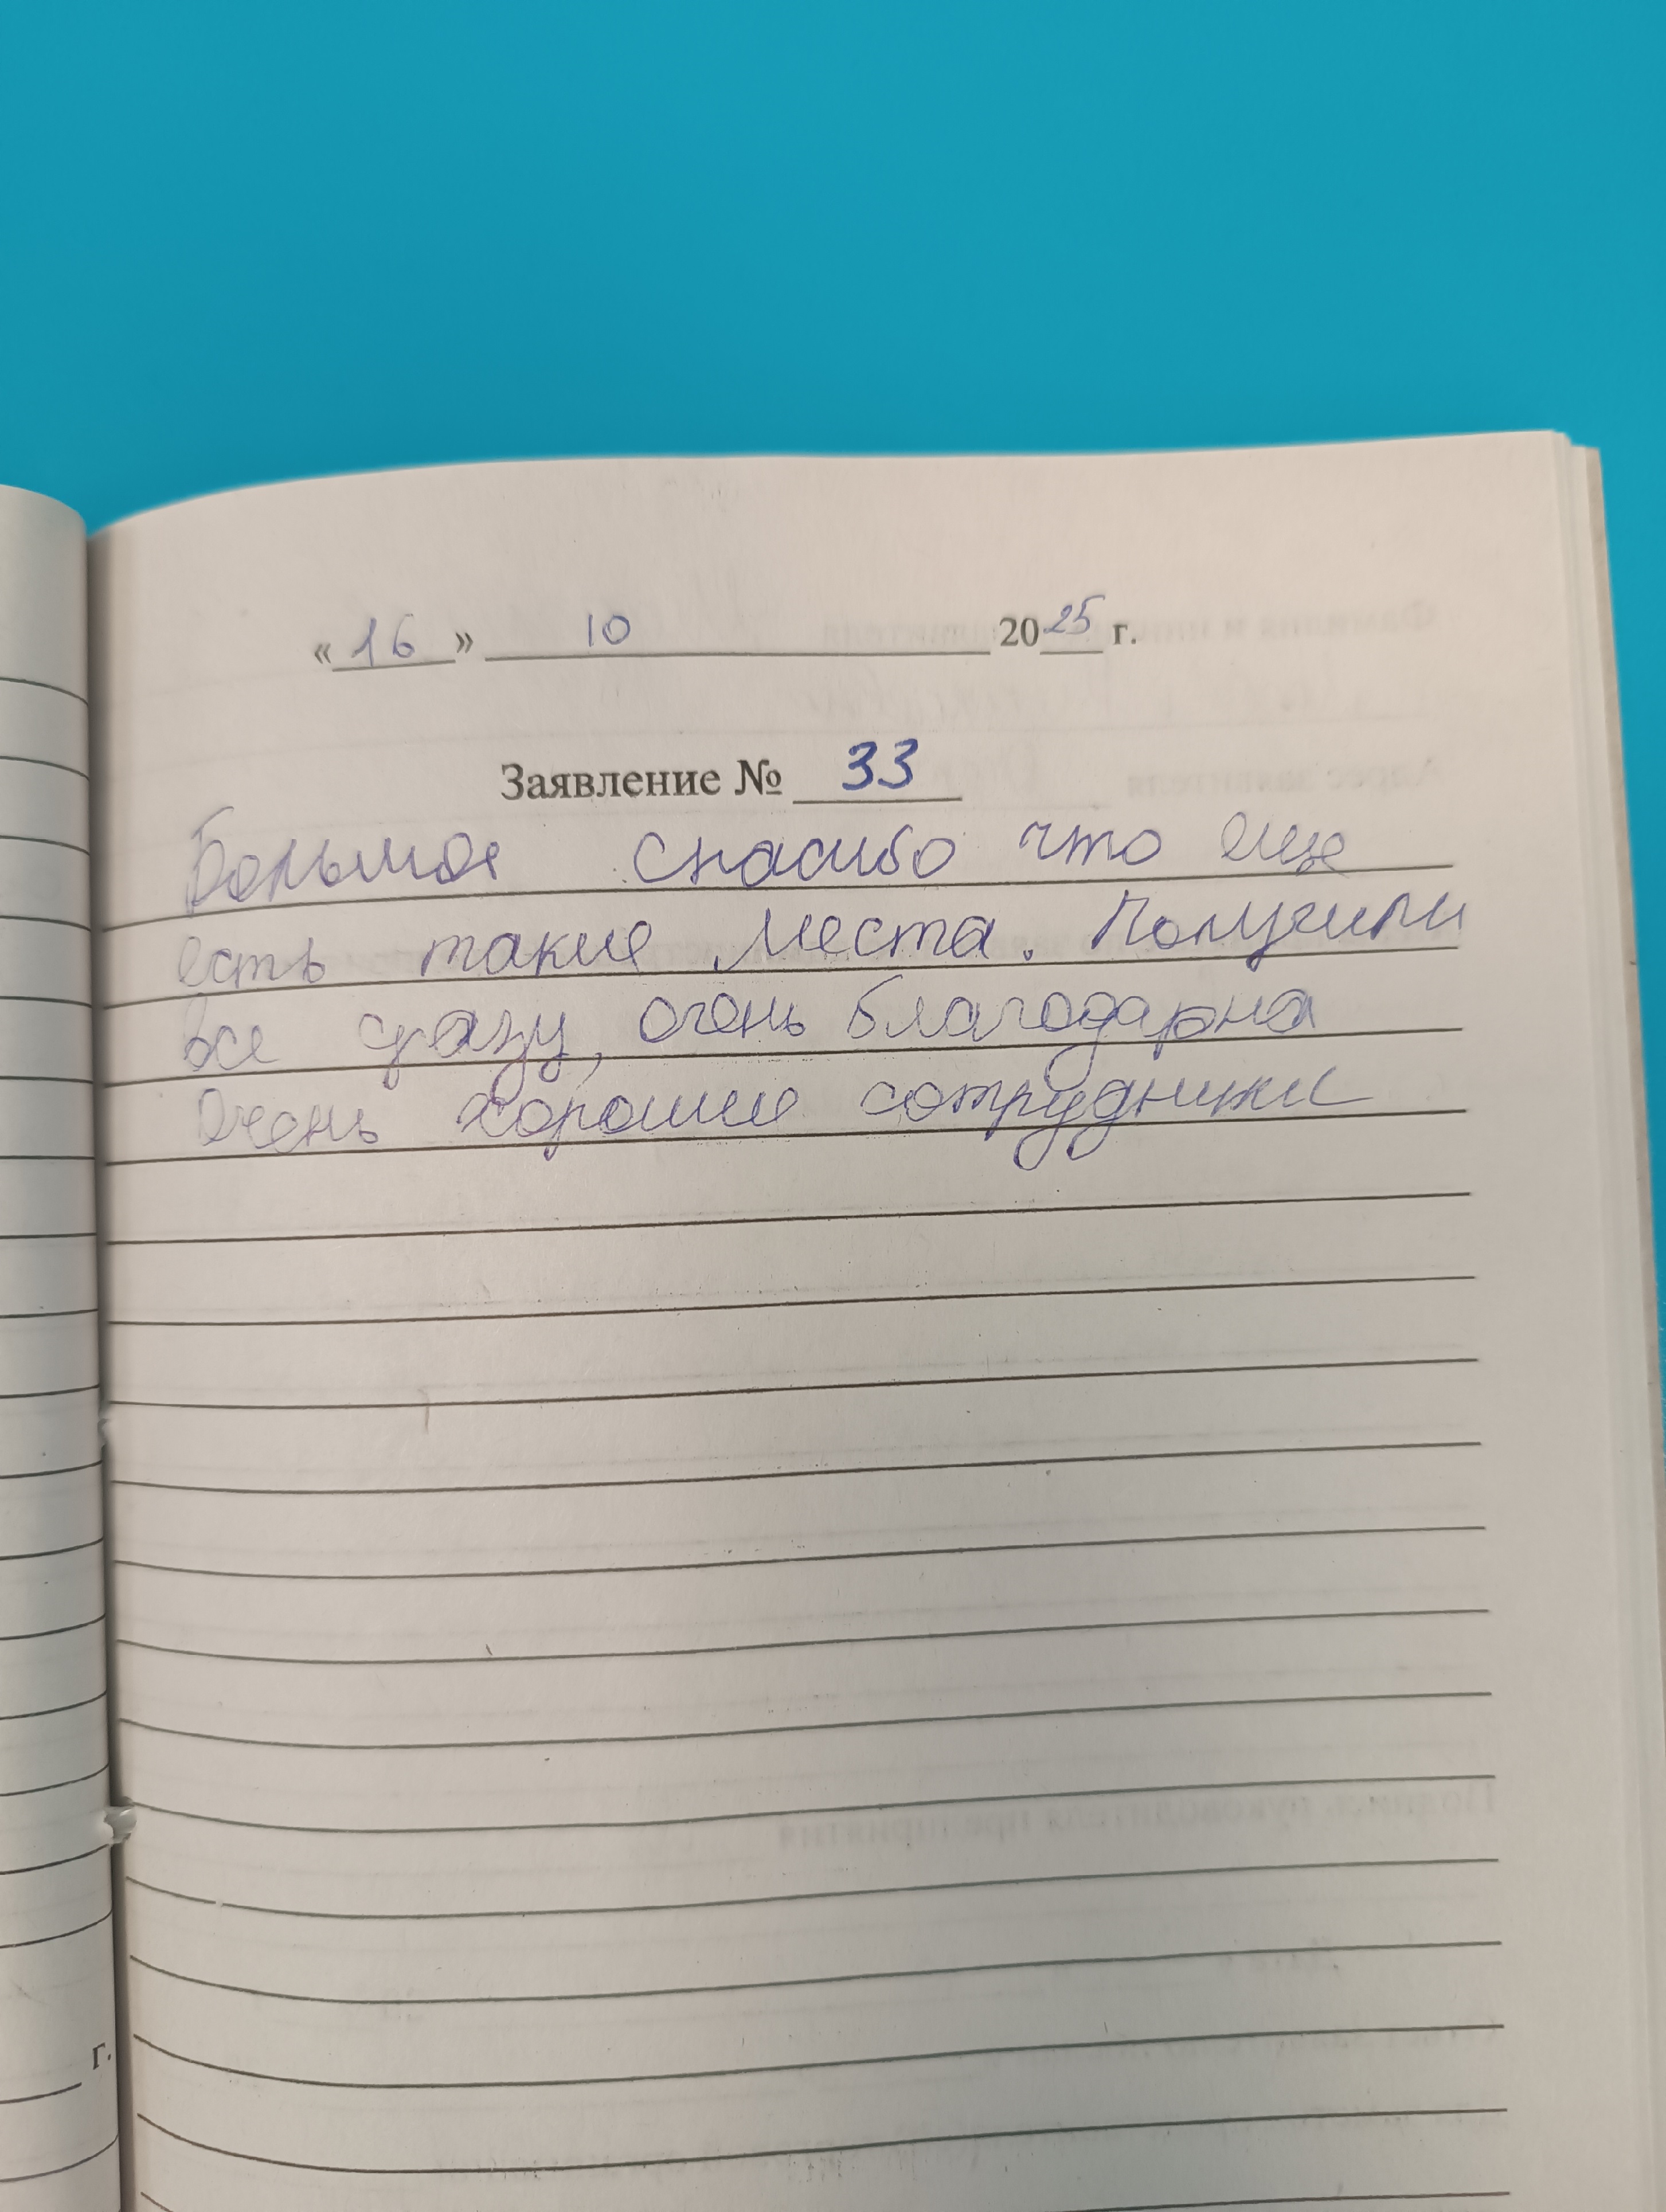 «16» 10 2025 г.
Заявление № 33
Большое спасибо что еще
есть такие места. Получили
все сразу, очень благодарна
Очень хорошие сотрудники
г.